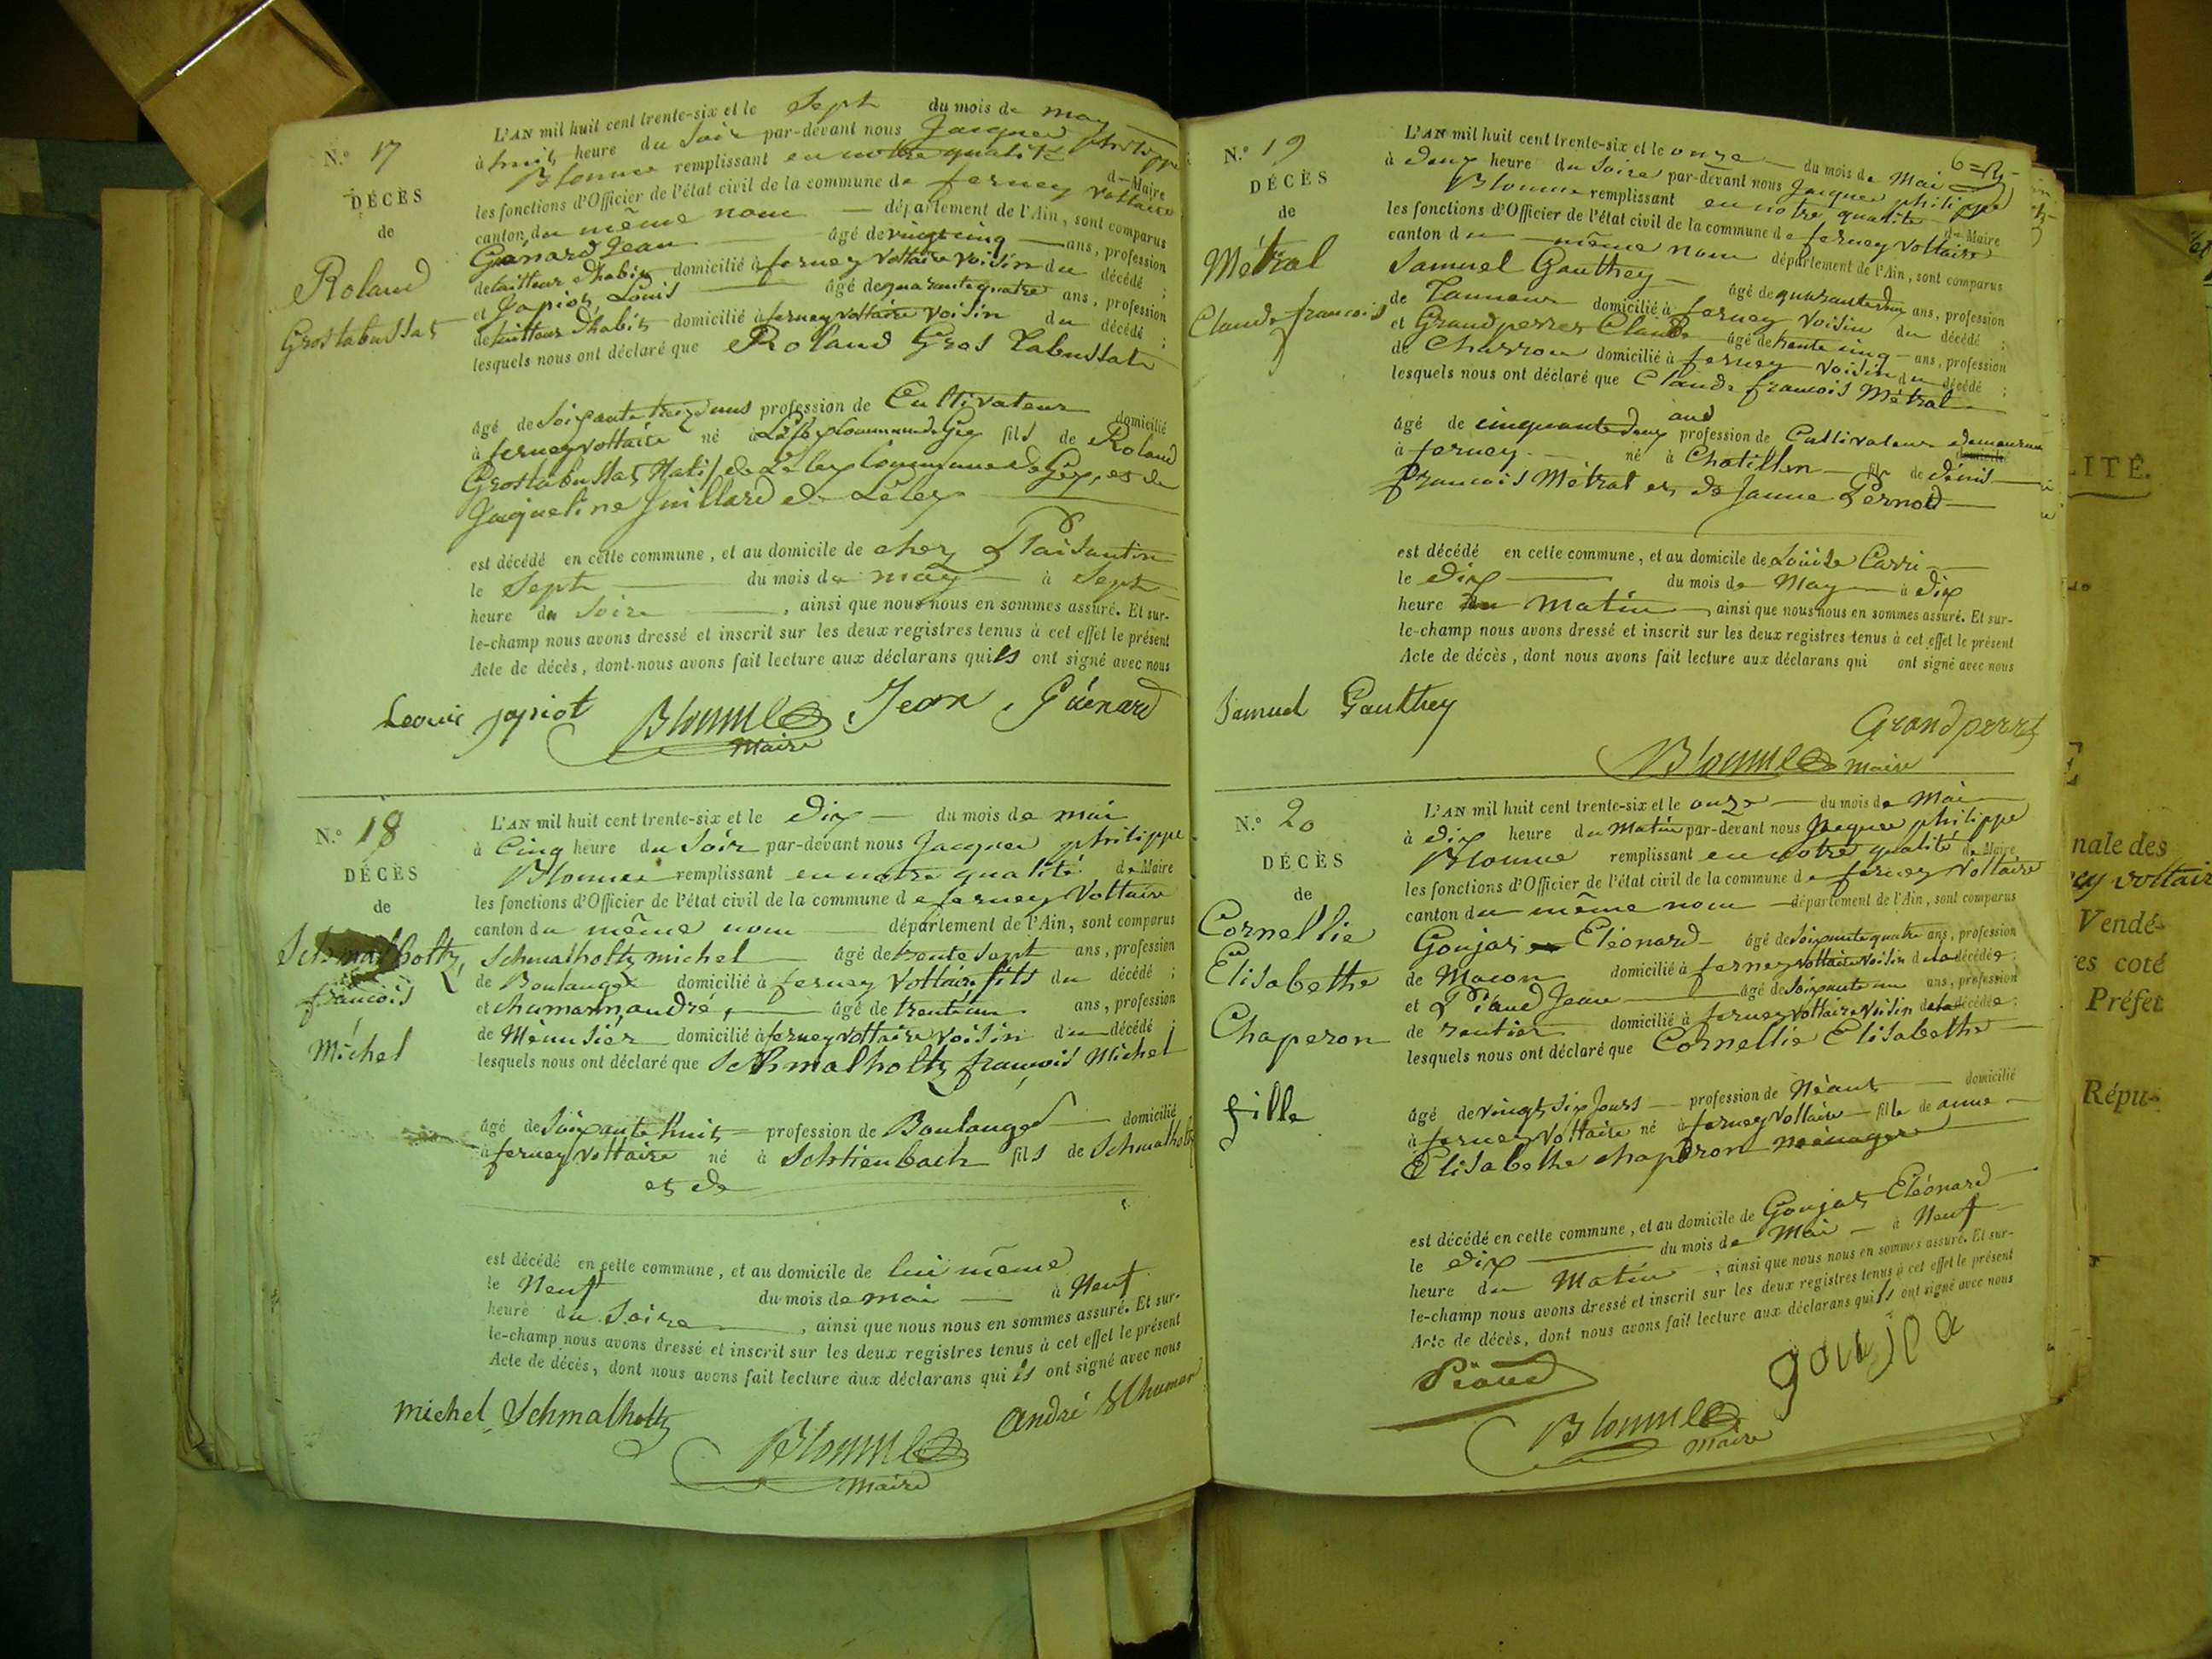 N.° 17
DÉCÈS
de
Roland
Grostabussat
L'AN mil huit cent trente-six et le Sept du mois de may
à huit heure du Soir par-devant nous Jacques philippe
Blonme remplissant en notre qualité de Maire
les fonctions d'Officier de l'état civil de la commune de ferney Voltaire
canton du même nom — département de l'Ain, sont comparus
Genard Jean âgé de vingt cinq ans, profession
de tailleur d'habit domicilié à ferney Voltaire Voisin du décédé ;
et Japiot Louis âgé de quarante quatre ans, profession
de tailleur d'habit domicilié à ferney voltaire voisin du décédé ;
lesquels nous ont déclaré que Roland Gros Tabussat
âgé de Soixante treize ans profession de Cultivateur domicilié
à ferney voltaire né à Lélex Commune de Gex fils de Roland
Grostabussat Natif de Lélex Commune de Gex, et de
Jaqueline Juillard de Lélex
est décédé en cette commune, et au domicile de chez Plaisantin
le Sept du mois de may à Sept
heure du Soire, ainsi que nous nous en sommes assuré. Et sur-
le-champ nous avons dressé et inscrit sur les deux registres tenus à cet effet le présent
Acte de décès, dont nous avons fait lecture aux déclarans qui ils ont signé avec nous
Louis japiot Blonme Jean Guénard
Maire
N.° 18
DÉCÈS
de
Schmalholtz,
francois
Michel
L'AN mil huit cent trente-six et le Dix du mois de mai
à Cinq heure du Soir par-devant nous Jacques philippe
Blonme remplissant en notre qualité de Maire
les fonctions d'Officier de l'état civil de la commune de ferney Voltaire
canton du même nom département de l'Ain, sont comparus
Schmalholtz michel âgé de trente Sept ans, profession
de Boulanger domicilié à ferney Voltaire fils du décédé ;
et chumar andré, âgé de trente un ans, profession
de Menusier domicilié à ferney voltaire voisin du décédé ;
lesquels nous ont déclaré que Schmalholtz francois Michel
âgé de Soixante huit profession de Boulanger domicilié
à ferney Voltaire né à Schtienbach fils de Schmalholtz
et de
est décédé en cette commune, et au domicile de lui même
le Neuf du mois de mai à Neuf
heure du Soire, ainsi que nous nous en sommes assuré. Et sur-
le-champ nous avons dressé et inscrit sur les deux registres tenus à cet effet le présent
Acte de décès, dont nous avons fait lecture aux déclarans qui ils ont signé avec nous
michel Schmalholtz Blonme andré Schumar
Maire
N.° 19
DÉCÈS
de
Métral
Claude francois
L'AN mil huit cent trente-six et le onze du mois de Mai
à deux heure du Soire par-devant nous Jacques philippe
Blonme remplissant en notre qualité de Maire
les fonctions d'Officier de l'état civil de la commune de ferney Voltaire
canton du même nom département de l'Ain, sont comparus
Samuel Gauthey âgé de quarante deux ans, profession
de Tanneur domicilié à ferney Voisin du décédé ;
et Grandperret Claude âgé de trente cinq ans, profession
de Charron domicilié à ferney voisin du décédé ;
lesquels nous ont déclaré que Claude francois Métral
âgé de cinquante deux ans profession de Cultivateur demeurant
à ferney né à Chatillon fils de dénis
francois Métral et de Janne Pernod
est décédé en cette commune, et au domicile de Louise Carri
le Dix du mois de May à Dix
heure du Matin, ainsi que nous nous en sommes assuré. Et sur-
le-champ nous avons dressé et inscrit sur les deux registres tenus à cet effet le présent
Acte de décès, dont nous avons fait lecture aux déclarans qui ont signé avec nous
Samuel Gauthey Grandperret
Blonme maire
N.° 20
DÉCÈS
de
Cornellie
Elisabethe
Chaperon
fille
L'AN mil huit cent trente-six et le onze du mois de Mai
à Dix heure du Matin par-devant nous Jacques philippe
Blonme remplissant en notre qualité de Maire
les fonctions d'Officier de l'état civil de la commune de ferney Voltaire
canton du même nom département de l'Ain, sont comparus
Goujat Eléonard âgé de Soixante quatre ans, profession
de Macon domicilié à ferney voltaire voisin de la décédée ;
et Piaud Jean âgé de Soixante un ans, profession
de rentier domicilié à ferney voltaire Voisin de la décédée ;
lesquels nous ont déclaré que Cornellie Elisabethe
âgé de vingt Six Jours profession de Néant domicilié
à ferney Voltaire né à ferney Voltaire fille de anne
Elisabethe chaperon ménagere
est décédé en cette commune, et au domicile de Goujat Eléonard
le Dix du mois de Mai à Neuf
heure du Matin, ainsi que nous nous en sommes assuré. Et sur-
le-champ nous avons dressé et inscrit sur les deux registres tenus à cet effet le présent
Acte de décès, dont nous avons fait lecture aux déclarans qui ils ont signé avec nous
Piaud
Blonme
Maire
LITÉ.
nale des
voltair
Vendé-
es coté
Préfet
Répu-